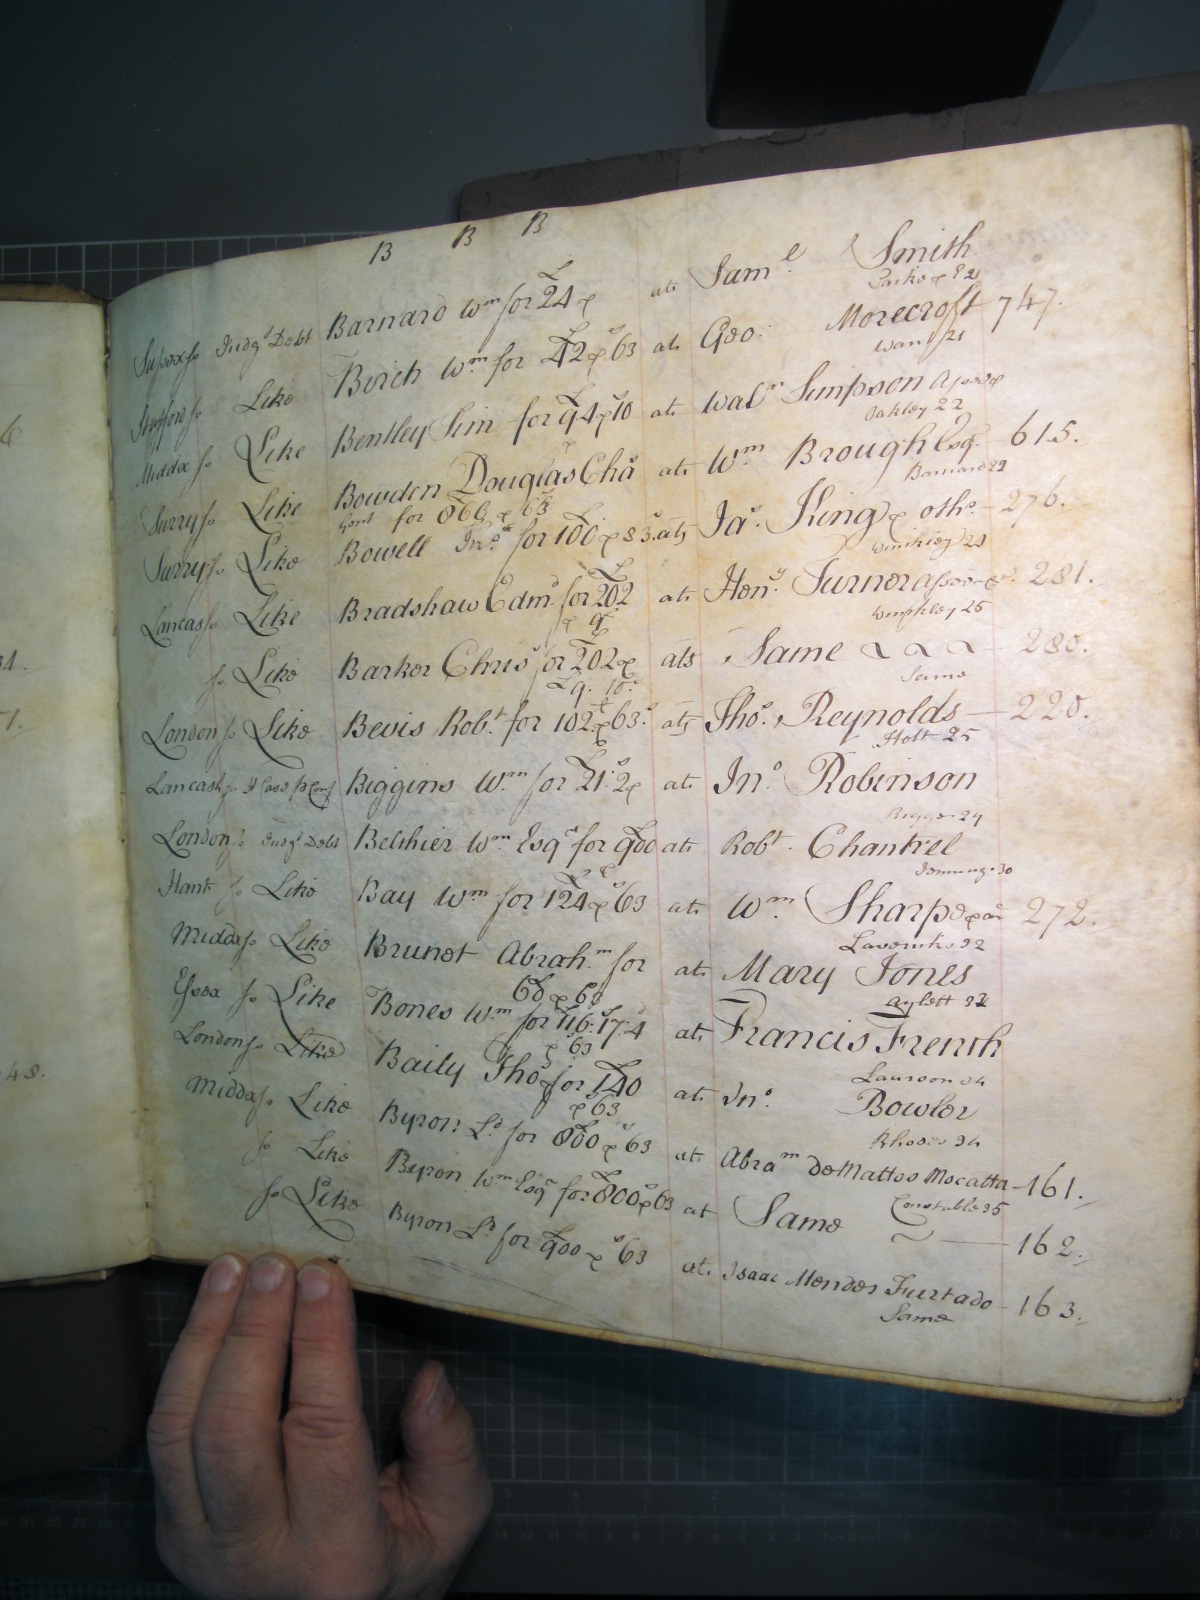 B B B
Sussex ss Judgt Debt Barnard Wm for £24 p at Saml Smith
Parke p 82
Hertford ss Like Birch Wm for £42 p 63s at Geo: Morecroft 747.
Wan 21
Middx ss Like Bentley Sim for £94 p 70s at Walr Simpson Assee
Oakley 22
Surry ss Like Bowden Douglas Chas at Wm Brough Esq. 615.
Gent for £866 p 63s Barnard 22
Surry ss Like Bowell Jno for 100 p 83s ats Jas King p oths - 276.
Winkley 23
Lancas ss Like Bradshaw Edmd for £202 at Heny Turner Assee - 281.
p 9s Winkley 25
ss Like Barker Chris for £202 p ats Same - 280.
£9. 10s Same
London ss Like Bevis Robt for 102 p 63s ats Thos Reynolds - 220.
Holt 25
Lancash ss Biggins Wm for £21:2 p at Jno Robinson
Rigge 29
London ss Judgt Debt Belchier Wm Esqr for 900 at Robt Chantrel
30
Hant ss Like Bay Wm for £124 p 63s at Wm Sharpe 272.
32
Middx ss Like Brunet Abrahm for at Mary Jones
£60 p 63 Aylett 32
Essex ss Like Bones Wm for £116:17:4 at Francis French
p 63 Lawson 34
London ss Like Baily Thos for £140 at Jno Bowler
p 63 Rhodes 34
Middx ss Like Byron Ld for £800 p 63s at Abram deMattos Mocatta - 161.
Constable 35
ss Like Byron Wm Esqr for £800 p 63s at Same - 162.
ss Like Byron Ld for £900 p 63s at Isaac Mendes Furtado - 163.
Same